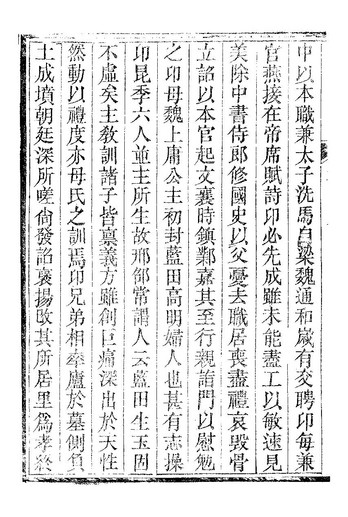 中以本職兼太子洗馬自梁魏通和歲有交聘卬每兼
官燕接在帝席賦詩卬必先成雖未能盡工以敏速見
美除中書侍郎修國史以父憂去職居喪盡禮哀毀骨
立詔以本官起文襄時鎮鄴嘉其至行親詣門以慰勉
之卬母魏上庸公主初封藍田高明婦人也甚有志操
卬昆季六人並主所生故邢卲常謂人云藍田生玉固
不虛矣主教訓諸子皆稟義方雖創巨痛深出於天性
然動以禮度亦母氏之訓焉卬兄弟相率廬於墓側負
土成墳朝廷深所嗟尚發詔褒揚改其所居里為孝終